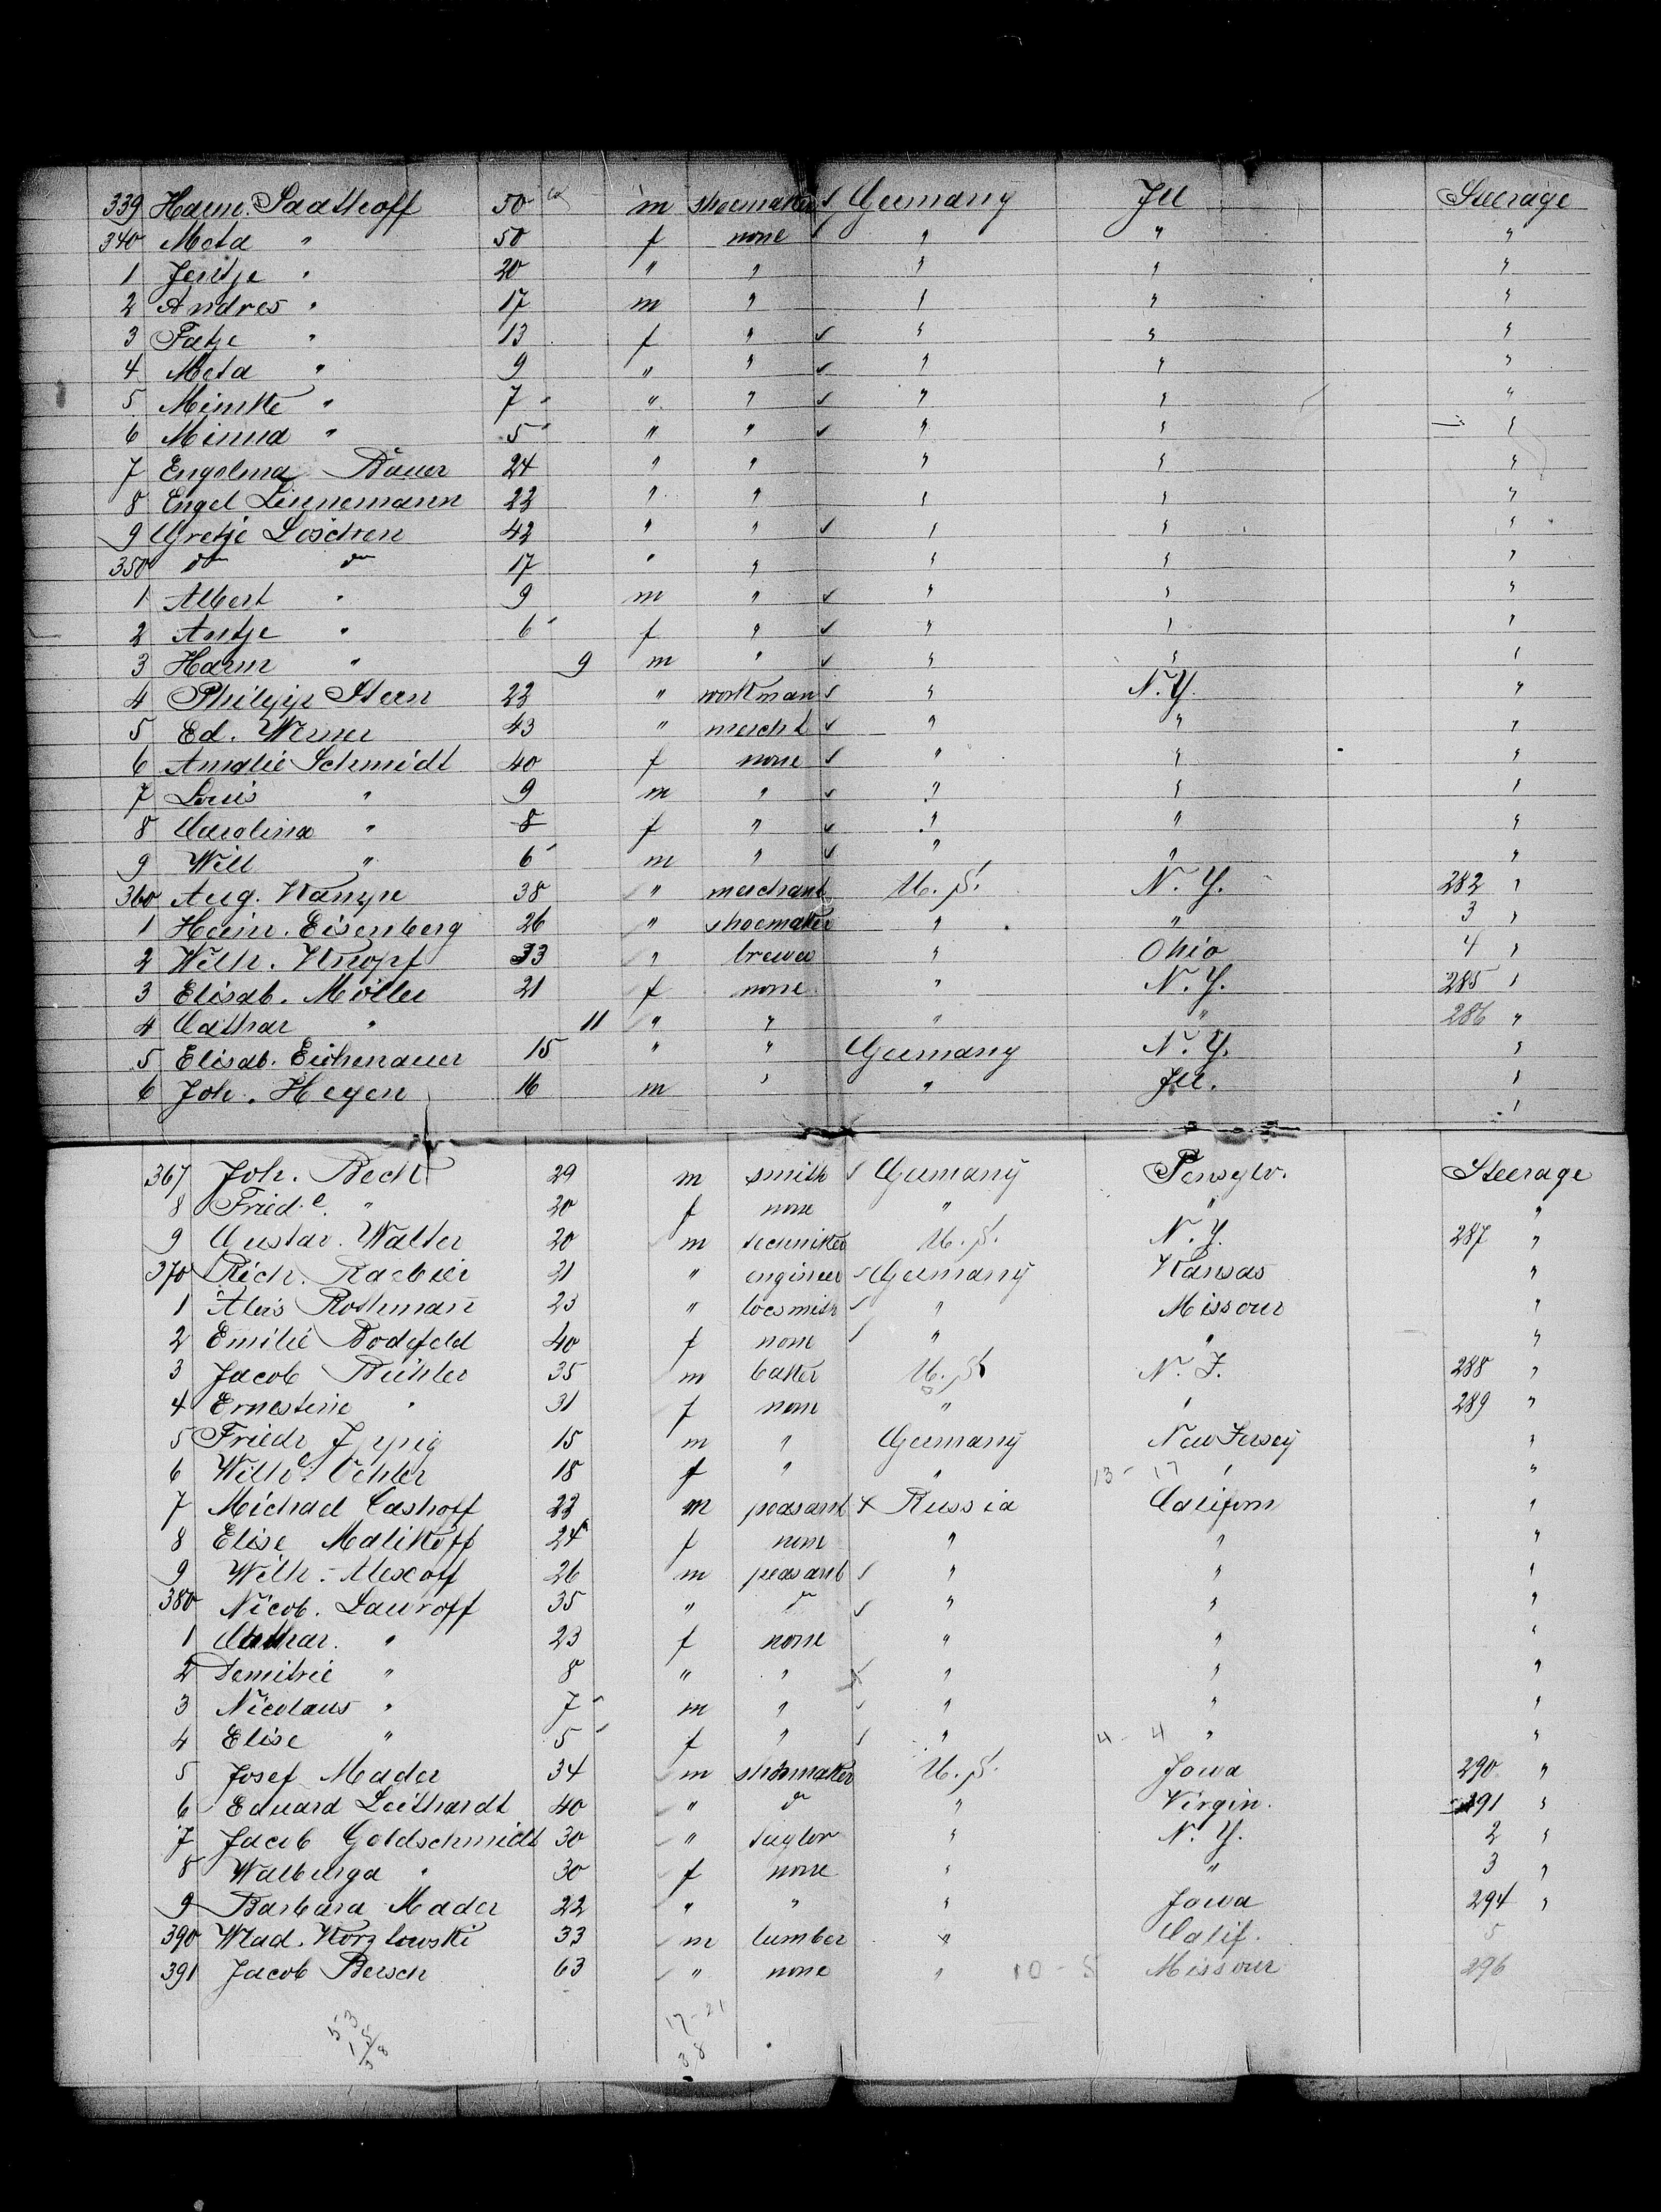 339 Harm. Saathoff 50 m shoemaker ✓ Germany Ill Steerage
340 Meta " 50 f none ✓ " " "
1 Jentje " 20 " " " " "
2 Andres " 17 m " " " "
3 Fatje " 13 f " ✓ " " "
4 Meta " 9 " " ✓ " " "
5 Mimke " 7 " " ✓ " " "
6 Minna " 5 " " ✓ " " "
7 Engelina Bauer 24 " " " " "
8 Engel Linnemann 22 " " " " "
9 Gretje Loschen 42 " " ✓ " " "
350 do do 17 " " " " "
1 Albert " 9 m " ✓ " " "
2 Antje " 6 f " ✓ " " "
3 Harm " 9 m " ✓ " " "
4 Philipp Stern 22 " workman ✓ " N.Y. "
5 Ed. Werner 43 " mercht ✓ " " "
6 Amalie Schmidt 40 f none ✓ " " "
7 Louis " 9 m " ✓ " " "
8 Carolina " 8 f " ✓ " " "
9 Will " 6 m " ✓ " " "
360 Aug. Kampe 38 " merchant U.S. N.Y. 282 "
1 Heinr. Eisenberg 26 " shoemaker " " 3 "
2 Wilh. Knopf 33 " brewer " Ohio 4 "
3 Elisab. Möller 21 f none " N.Y. 285 "
4 Cathar " 11 " " " " 286 "
5 Elisab. Eichenauer 15 " " Germany N.Y. "
6 Joh. Heyen 16 m " " Ill. "
367 Joh. Becht 29 m smith ✓ Germany Pensylv. Steerage
8 Fried.e " 20 f none " " "
9 Gustav. Walter 20 m techniker U.S. N.Y. 287 "
370 Rich. 21 " engineer ✓ Germany Kansas "
1 Alois Rothman 23 " locsmith ✓ " Missour "
2 Emilie Bodefeld 40 f none ✓ " " "
3 Jacob Bühler 35 m baker U.S. N.J. 288 "
4 Ernestine " 31 f none " " 289 "
5 Friedr 15 m " Germany New Jersey "
6 Wilhe. Oehler 18 f " " 13 - 17 " "
7 Michael Cashoff 22 m peasant x Russia Californ "
8 Elise Malikoff 24 f none " " "
9 Wilh. Alexoff 26 m peasant ✓ " " "
380 Nicob. Lauroff 35 " do ✓ " " "
1 Cathar. " 23 f none " " "
2 Demitrie " 8 " " x " " "
3 Nicolaus " 7 m " ✓ " " "
4 Elise " 5 f " ✓ " 4 - 4 " "
5 Josef Mader 34 m shoemaker U.S. Jowa 290 "
6 Eduard Leithardt 40 " do " Virgin. 291 "
7 Jacob Goldschmidt 30 " taylor " N.Y. 2 "
8 Walburga " 30 f none " " 3 "
9 Barbara Mader 22 " " " Jowa 294 "
390 Wlad. Korzlowski 33 m lumber " Calif. 5
391 Jacob Bersch 63 " none " 10 - 5 Missour 296
53 17 - 21
15 38
38